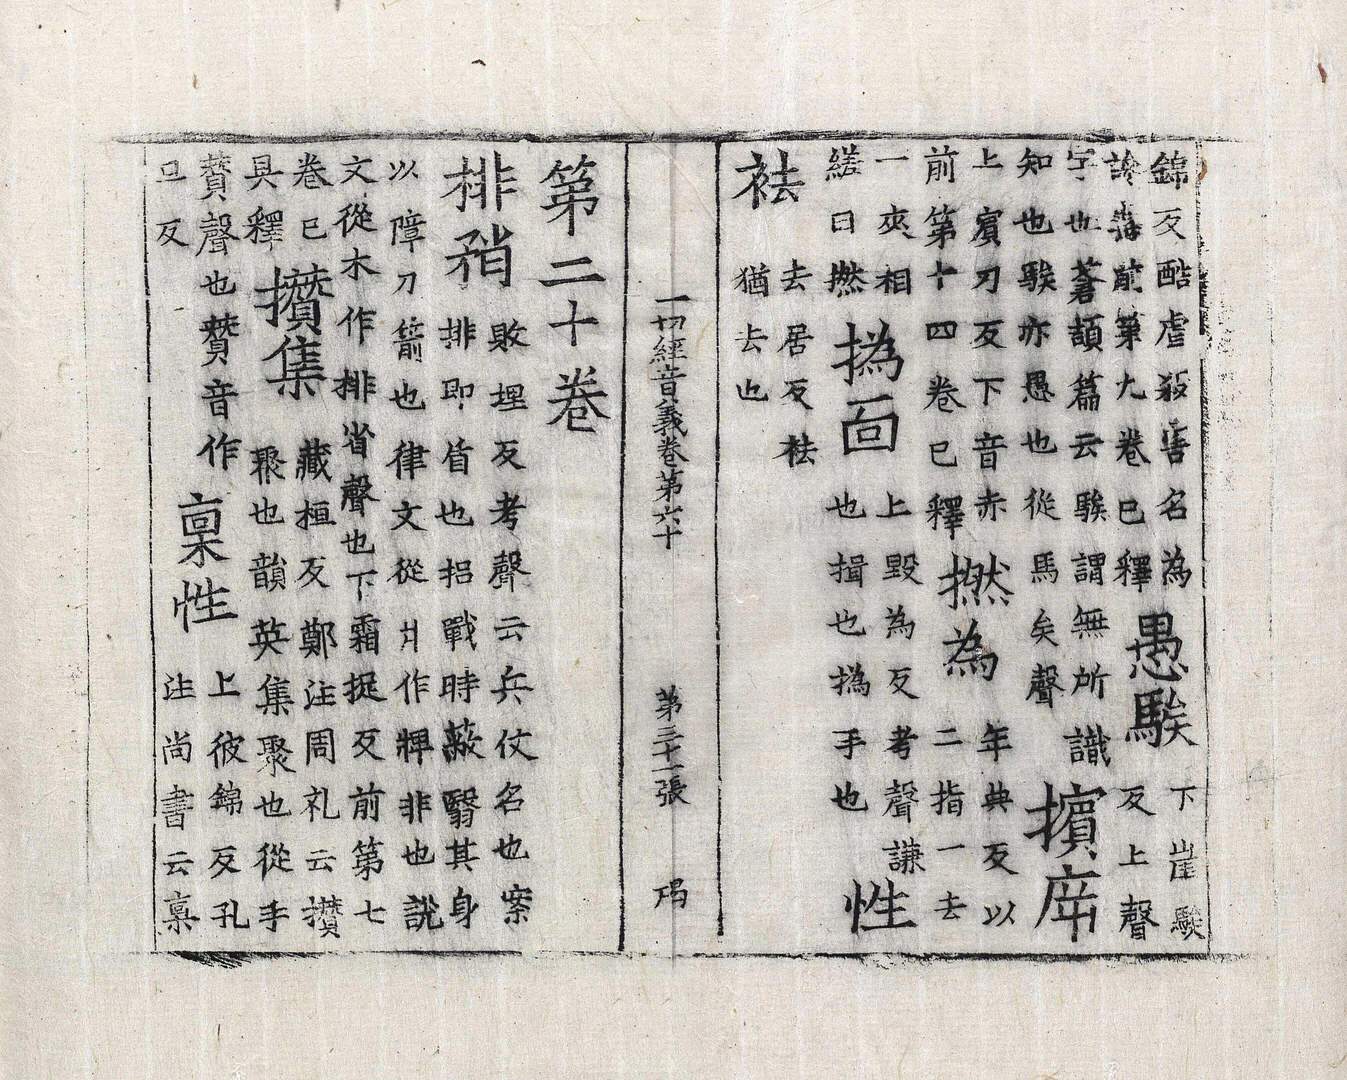 錦反酷虐殺害名為
毒前第九卷已釋
愚騃
下崖騃
反上聲
字也蒼頡篇云騃謂無所識
知也騃亦愚也從馬矣聲
擯庌
上賓刃反下音赤
前第十四卷已釋
撚為
年典反以
二指一去
一夾相
縒曰撚
撝面
上毀為反考聲謙
也揖也撝手也
性
袪
去居反袪
猶去也
一切經音義卷第六十
第三十一張
第二十卷
排矟
敗埋反考聲云兵仗名也案
排即盾也招戰時蔽翳其身
以障刀箭也律文從爿作牌非也說
文從木作排省聲也下霜捉反前第七
卷已
具釋
攢集
藏桓反鄭注周礼云攢
聚也韻英集聚也從手
贊聲也贊音作
旦反
稟性
上彼錦反孔
注尚書云稟